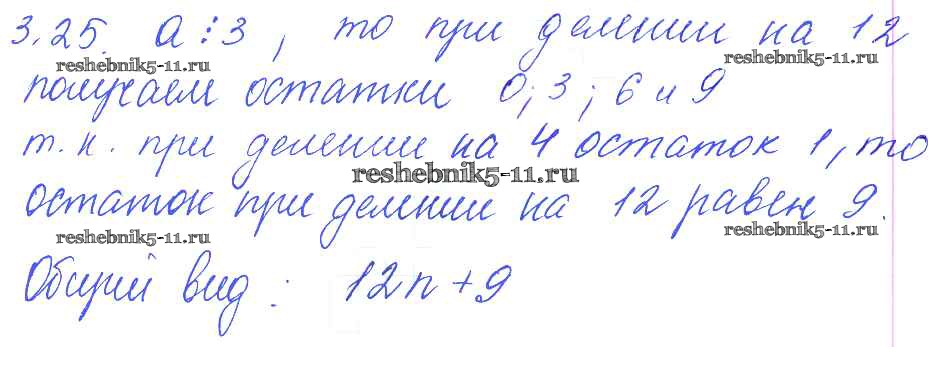 3.25. a ⋮ 3, то при делении на 12
reshebnik5-11.ru reshebnik5-11.ru
получаем остатки 0; 3; 6 и 9
т. к. при делении на 4 остаток 1, то
reshebnik5-11.ru
остаток при делении на 12 равен 9.
reshebnik5-11.ru reshebnik5-11.ru
Общий вид: 12n + 9